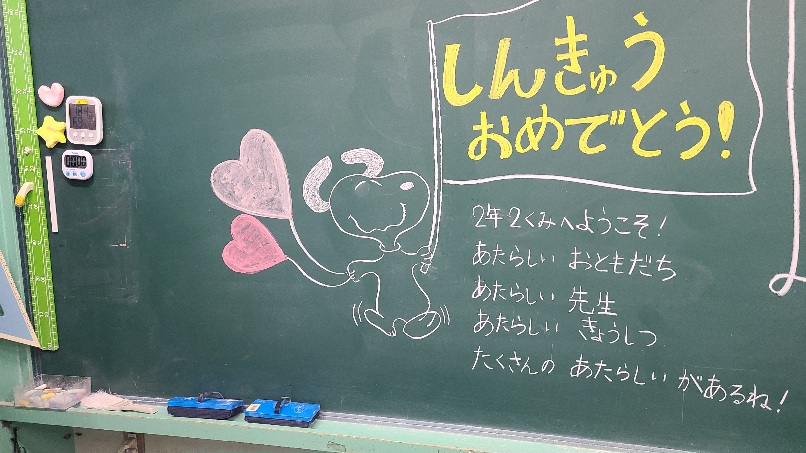 しんきゅう
おめでとう!
2年2くみへようこそ!
あたらしい おともだち
あたらしい 先生
あたらしい きょうしつ
たくさんの あたらしい があるね!